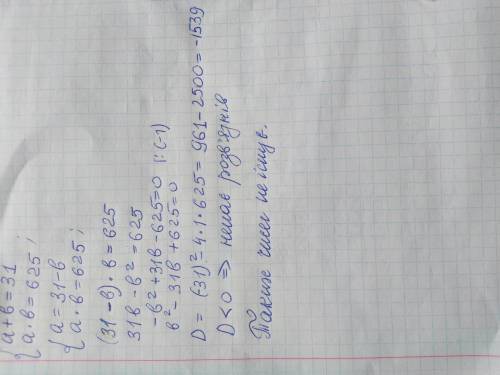 {a+в=31
{a·в=625;
{a=31-в
{a·в=625;
(31-в)·в=625
31в-в²=625
-в²+31в-625=0 |:(-1)
в²-31в+625=0
D=(-31)²-4·1·625=961-2500=-1539
D<0 ⇒ немає розв'язків
Таких чисел не існує.